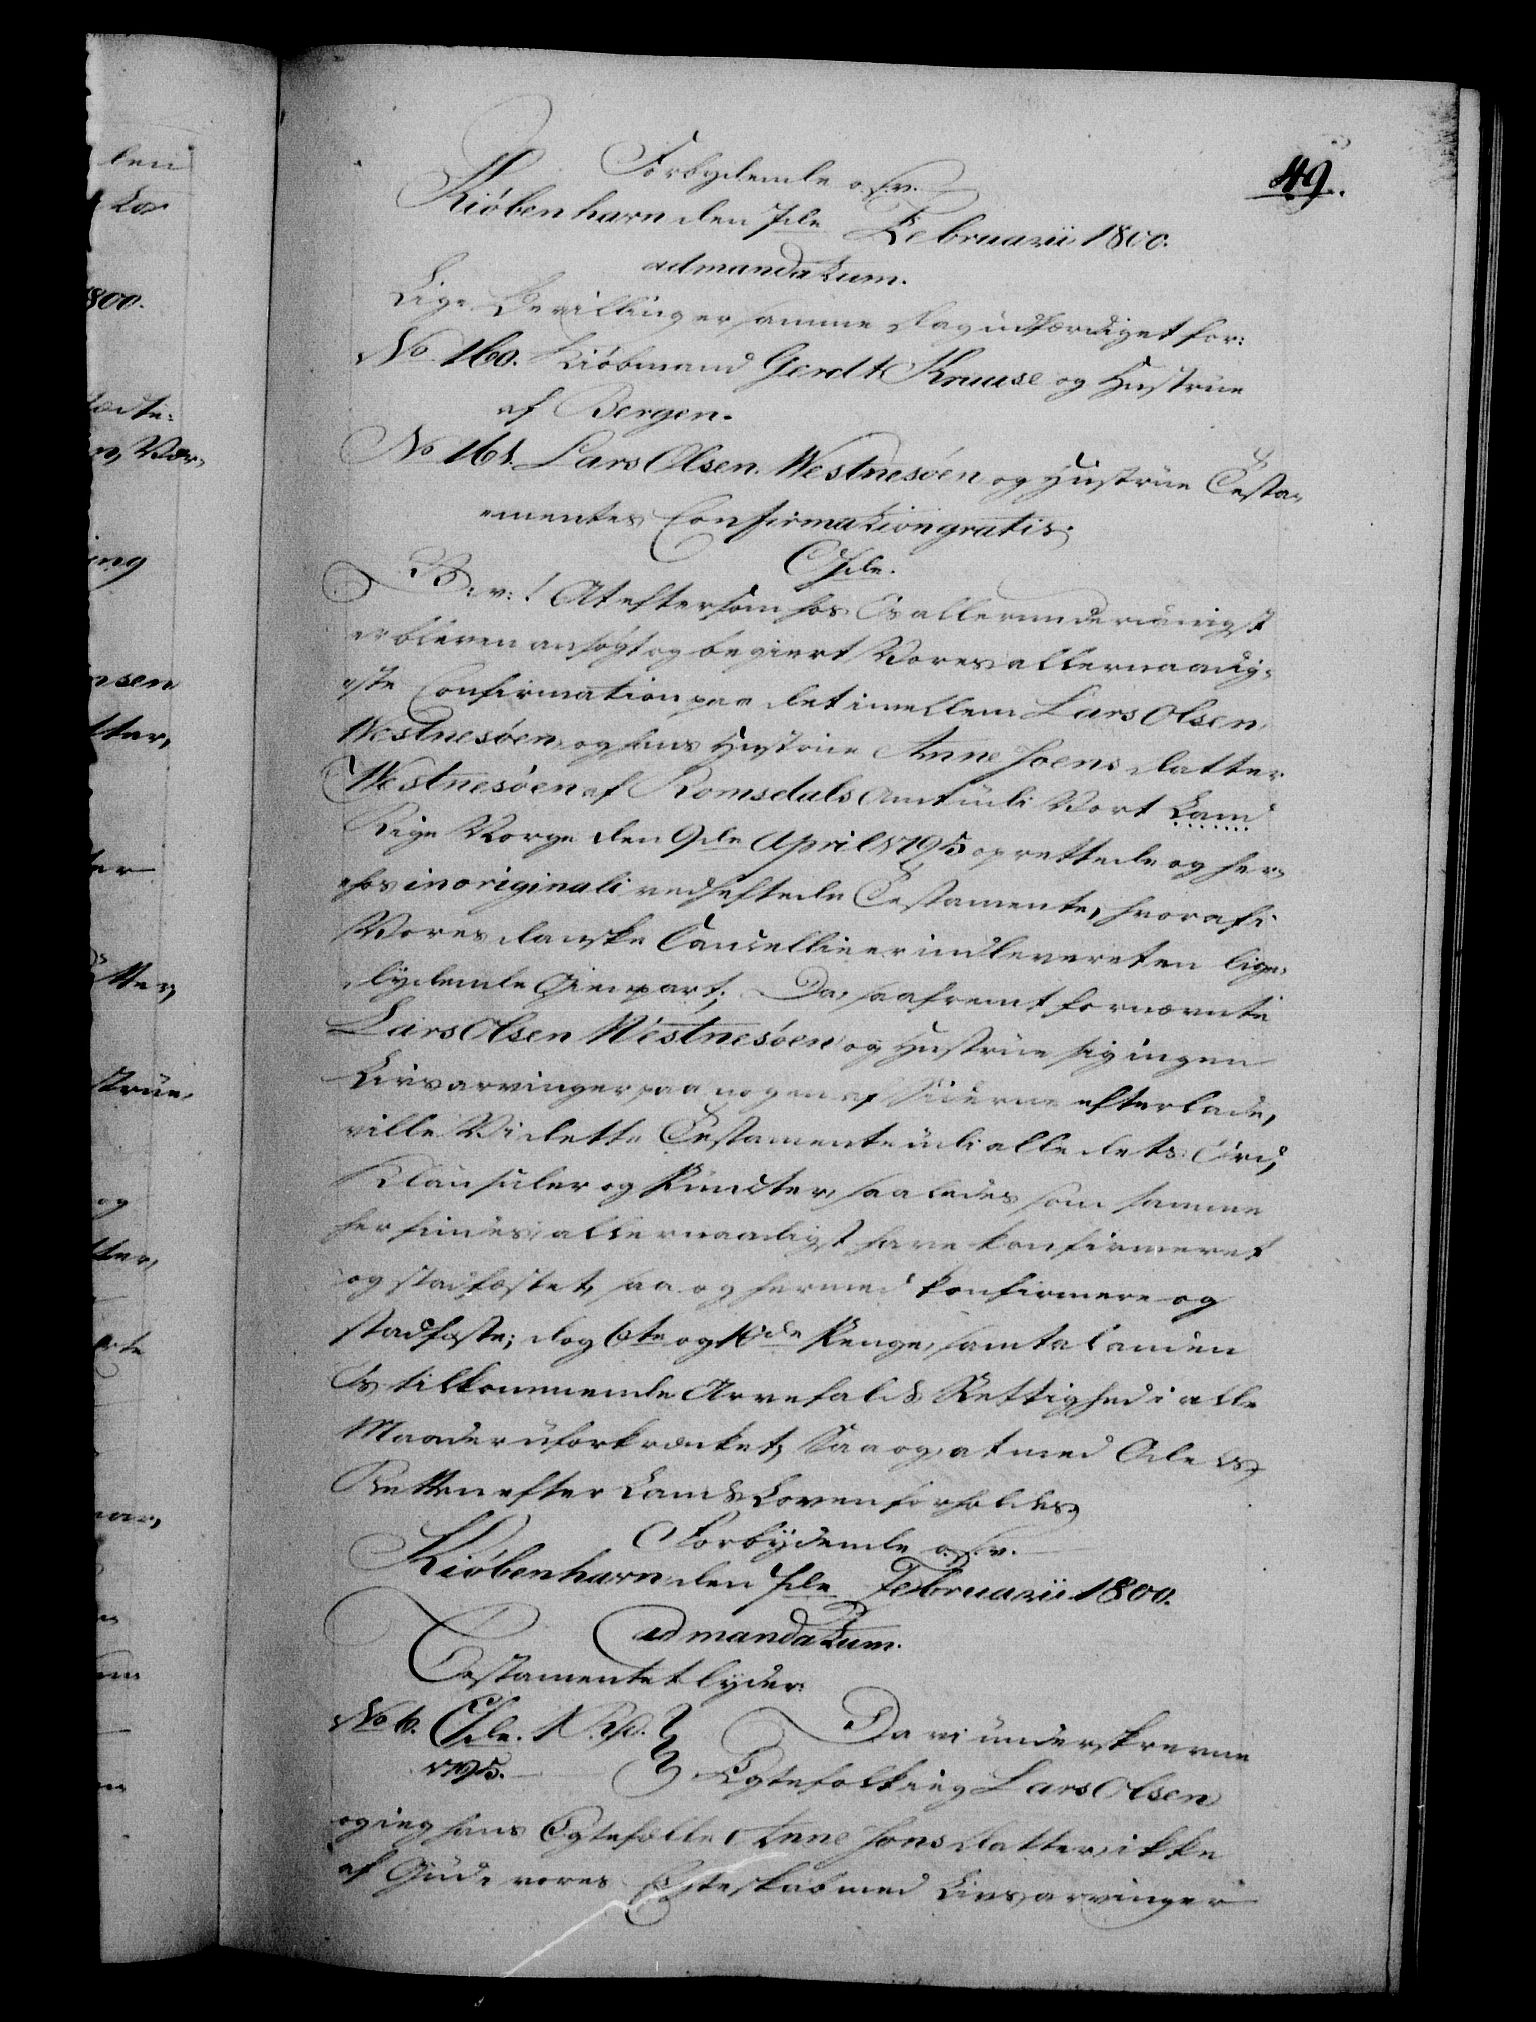 49.
Forbydende o.s.v.
Kiöbenhavn den 7de Februarii 1800.
ad mandatum.
Lige Bevillinger samme Dag udfærdiget for:
No 160. Kiöbmand Gerdt Kruuse og Hustrüe
af Bergen.
No 161. Lars Olsen Westnesöen og Hustrüe Testa-
mentes Confirmation gratis.
C 7de.
G: v:! At eftersom hos Os allerunderdanigst
er bleven ansögt og begiert Vores allernaadig-
ste Confirmation paa det imellem Lars Olsen
Westnesöen og hans Hustrüe Anne Joens datter
Westnesöen af Romsdals Amt üdi Vort Land
Rige Norge den 9de April 1795 oprettede og her-
hos in originali vedheftede Testamente, hvoraf i
Vores danske Cancellie er indleveret en lige-
lydende Gienpart; Da, saafremt fornævnte
Lars Olsen Westnesöen og Hustrüe sig ingen
Livsarvinger paa nogen af Siderne efterlade,
ville Vi dette Testamente üdi alle dets Ord,
Klausuler og Puncter, saaledes som samme
her findes, allernaadigst have konfirmeret
og stadfæstet, saa og hermed konfirmere og
stadfæste; dog 6te og 10de Penge, samt al anden
Os tilkommende Arvefalds Rettighed i alle
Maader üforkrænket, Saa og, at med Odels
Retten efter Lands Loven forholdes,
Forbydende o.s.v.
Kiöbenhavn den 7de Februarii 1800.
ad mandatum.
Testamentet lyder:
No 6. C 1 Rd.
1795.
Da vi ünderskrevne
Egtefolk ieg Lars Olsen
og ieg hans Egtefælle Anne Jons datter, ikke
af Gud i vores Egteskab med Livsarvinger